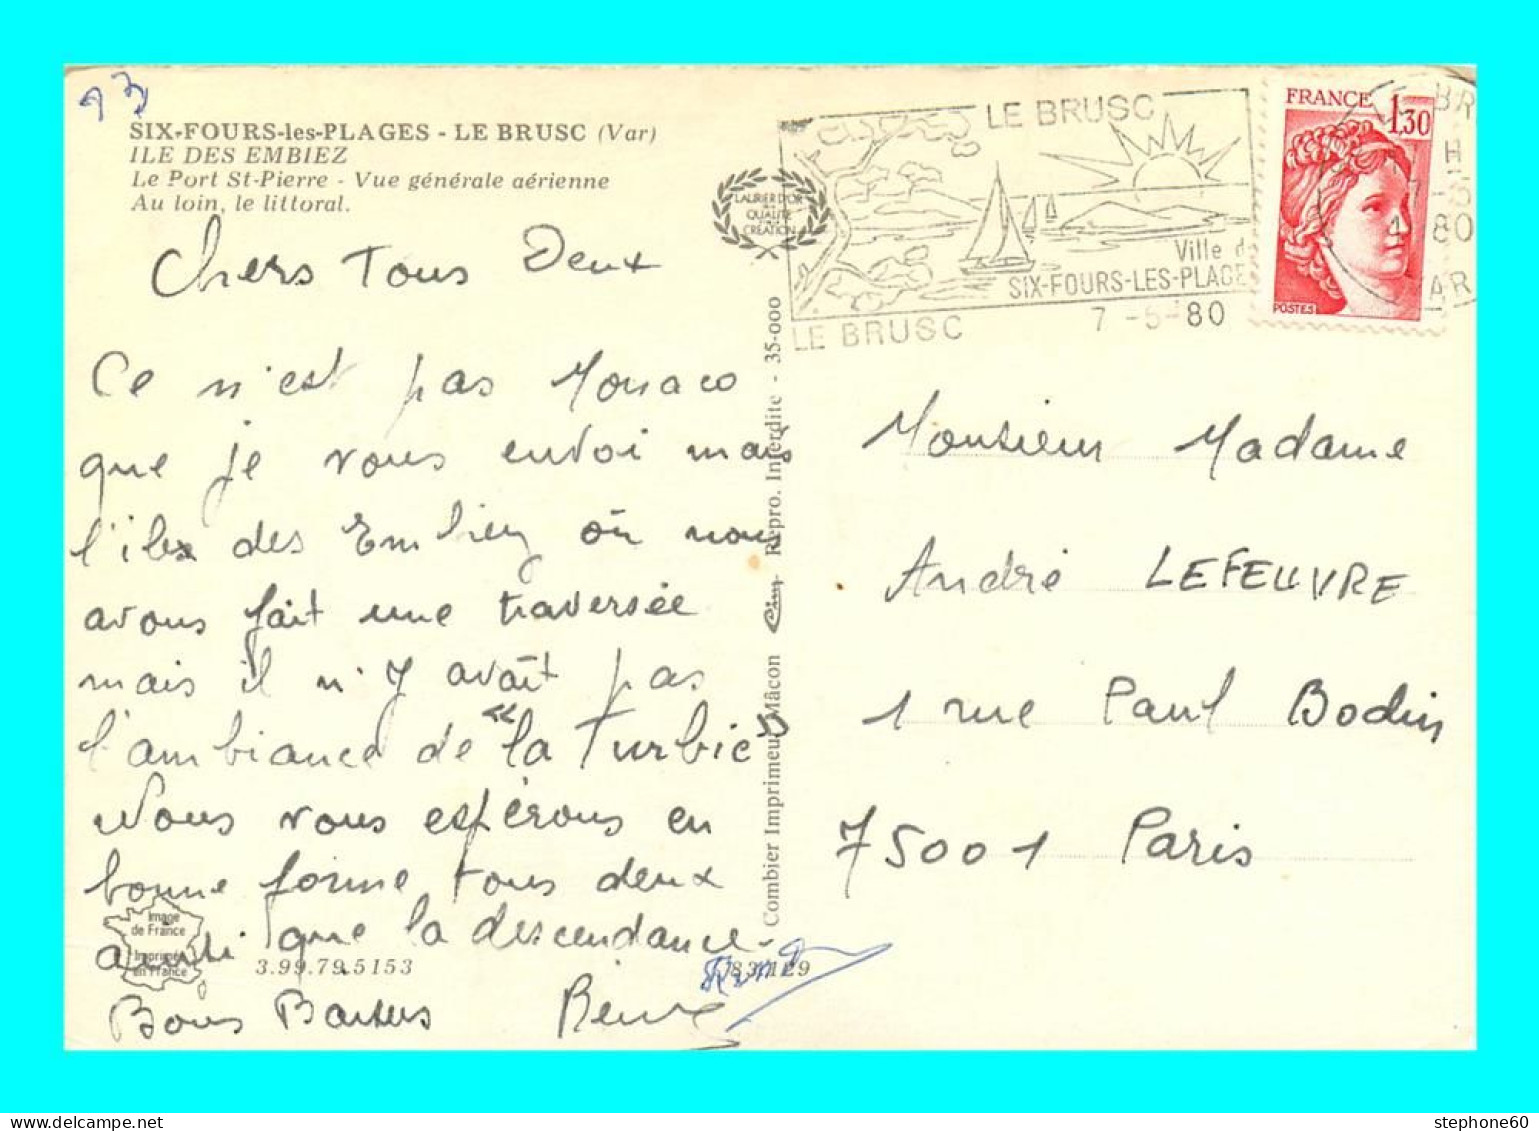 93
SIX-FOURS-les-PLAGES - LE BRUSC (Var)
ILE DES EMBIEZ
Le Port St-Pierre - Vue générale aérienne
Au loin, le littoral.
Chers Tous Deux
Ce n'est pas Monaco
que je vous envoi mais
l'ile des Embiez où nous
avons fait une traversée
mais il n'y avait pas
l'ambiance de "la Turbie"
Nous vous espérons en
bonne forme tous deux
ainsi que la descendance.
Bons Baisers
Image
de France
Imprimée
en France
3.99.79.5153
83/129
LAURIER D'OR
DE LA
QUALITÉ
CRÉATION
Combier Imprimeur Mâcon Cim Repro. Interdite - 35-000
LE BRUSC
Ville d
SIX-FOURS-LES-PLAGE
LE BRUSC
7 -5-80
FRANCE
1,30
POSTES
LE BR
H
7-5
1 80
VAR
Monsieur Madame
André LEFEUVRE
1 rue Paul Bodin
75001 Paris
stephone60